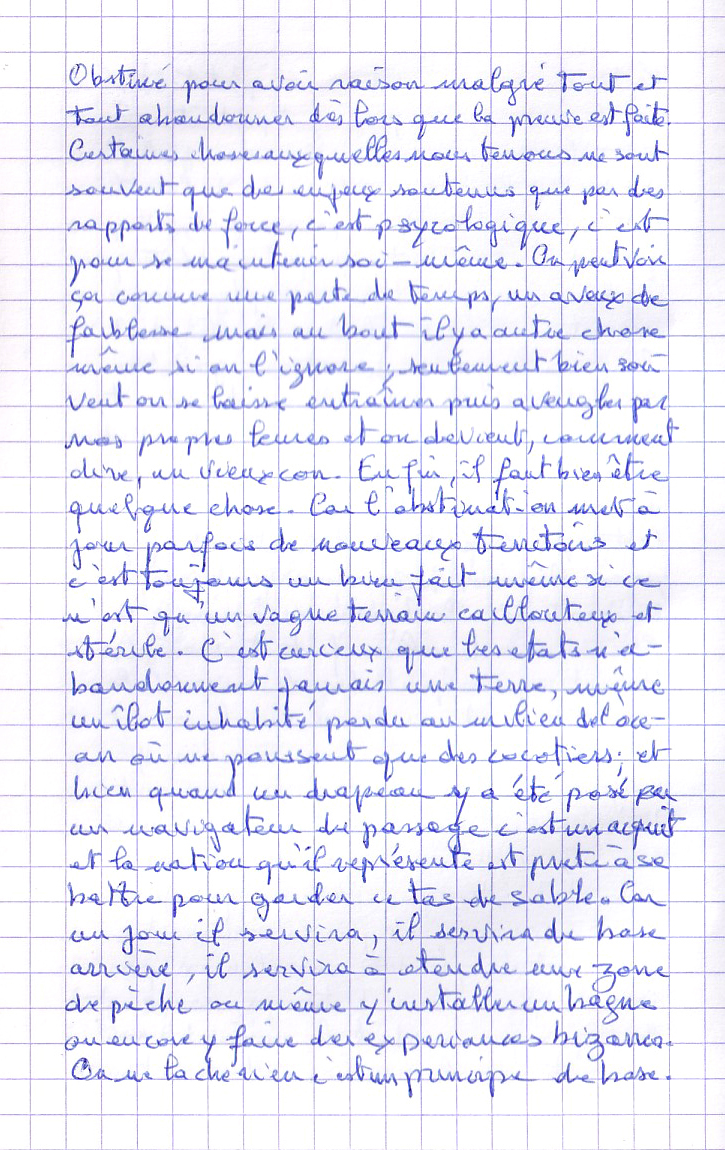 Obstiné pour avoir raison malgré tout et
tout abandonner dès lors que la preuve est faite.
Certaines choses auxquelles nous tenons ne sont
souvent que des enjeux soutenus que par des
rapports de force, c'est psycologique, c'est
pour se maintenir soi-même. On peut voir
ça comme une perte de temps, un aveux de
faiblesse mais au bout il y a autre chose
même si on l'ignore ; seulement bien sou
vent on se laisse entraîner puis aveugler par
nos propres leurres et on devient, comment
dire, un vieux con. Enfin, il faut bien être
quelque chose. Car l'abstination met à
jour parfois de nouveaux territoirs et
c'est toujours un bien fait même si ce
n'est qu'un vague terrain caillouteux et
stérile. C'est curieux que les etats n'a-
bandonnent jamais une terre, même
un îlot inhabité perdu au milieu del oce-
an où ne poussent que des cocotiers ; et
bien quand un drapeau y a été posé par
un navigateur de passage c'est un acquit
et la nation qu'il représente est prete à se
battre pour garder ce tas de sable. Car
un jour il servira, il servira de base
arrière, il servira à etendre une zone
de pêche ou même y installer un bagne
ou encore y faire des experiances bizarres.
On ne lache rien c'est un principe de base.